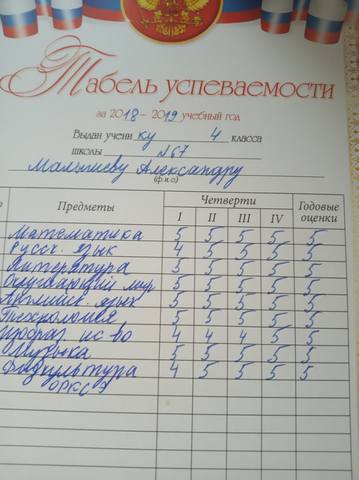 Табель успеваемости
за 2018-2019 учебный год
Выдан учени ку 4 класса
школы №67
Малышеву Александру
(ф.и.о)
Предметы Четверти Годовые оценки
I II III IV
Математика 5 5 5 5 5
Русск. язык 4 5 5 5 5
Литература 5 5 5 5 5
Окружающий мир 5 5 5 5 5
Английск. язык 5 5 5 5 5
Технология 5 5 5 5 5
Изобраз. ис-во 4 4 4 5 5
Музыка 5 5 5 5 5
Физкультура 4 5 5 5 5
ОРКСЭ